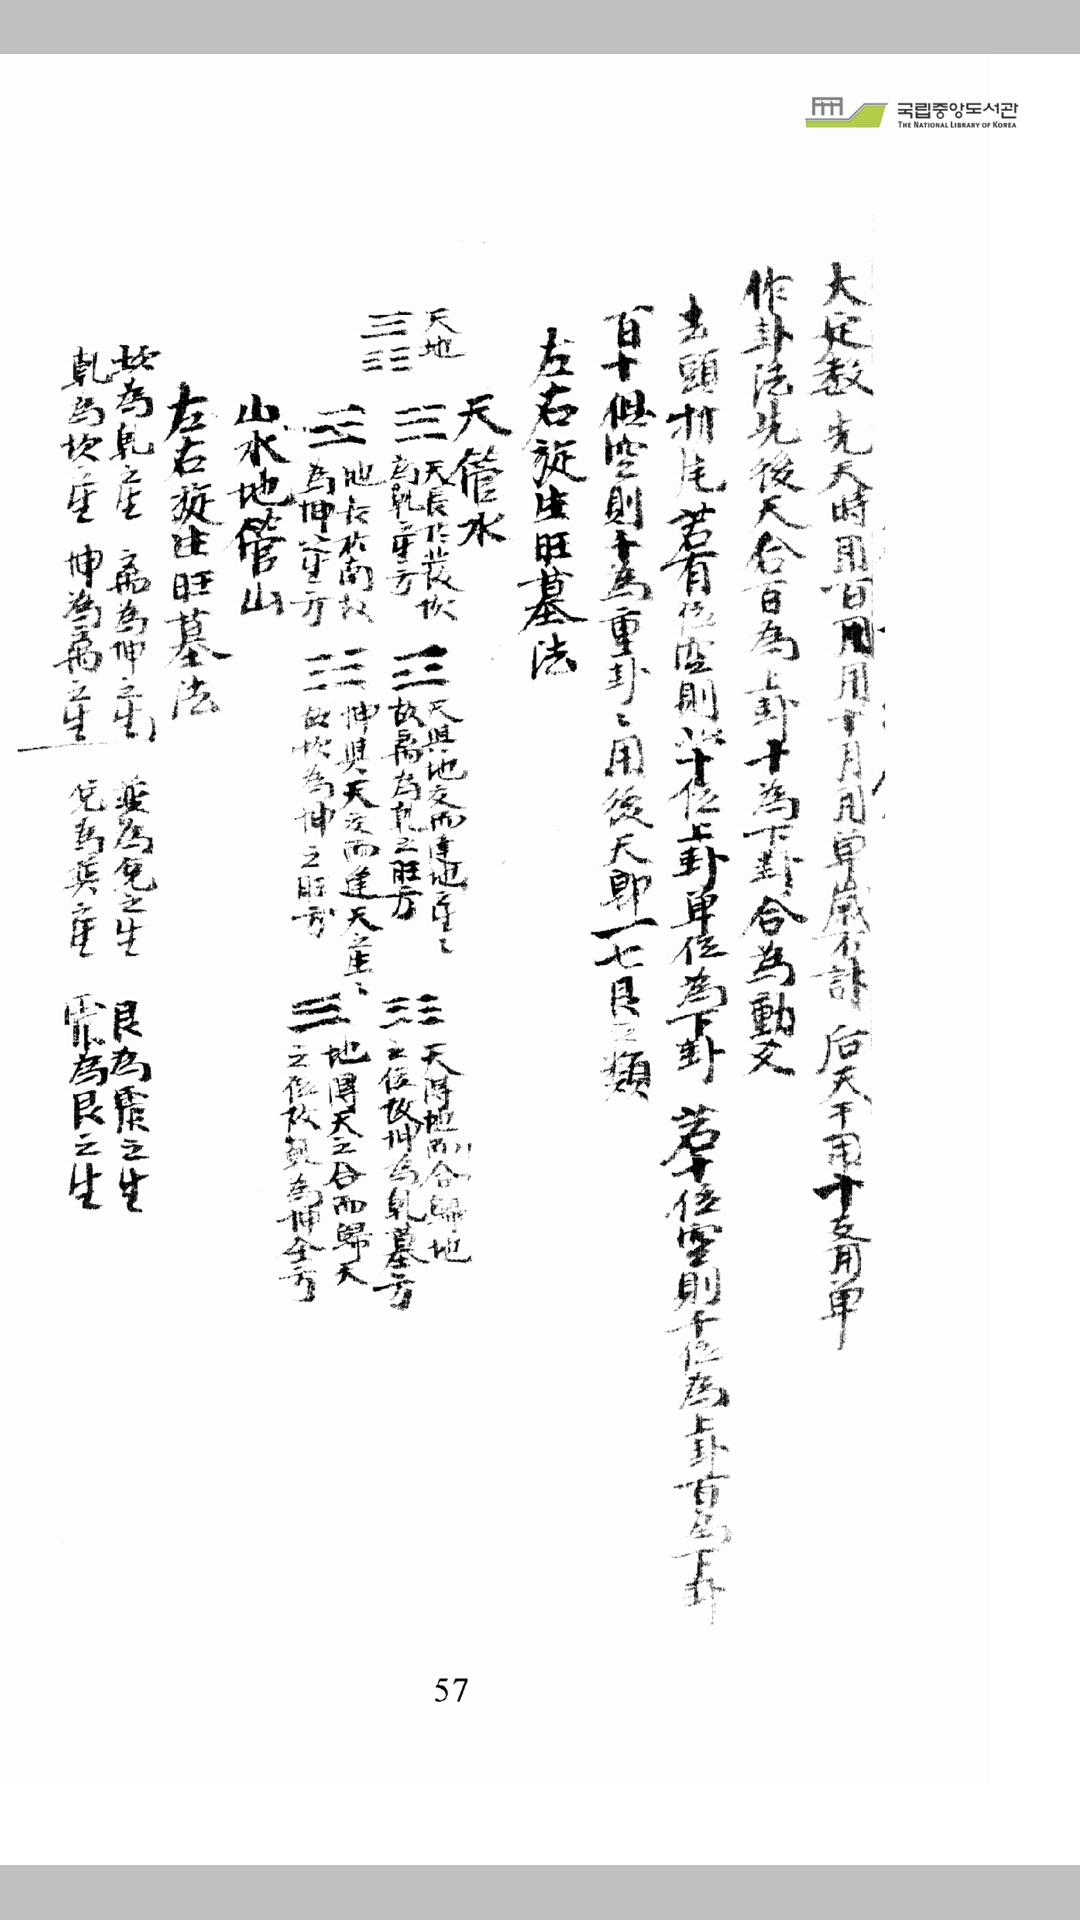 국립중앙도서관
THE NATIONAL LIBRARY OF KOREA
大定數 先天時用百 用十月用單歲不計 后天干用十支用單
作卦法先後天合百為上卦十為下卦合為動爻
去頭 尾若有位空則以十位上卦單位為下卦 若十位空則千位為上卦百為下卦
百十俱空則千為重卦〻用後天卽一七艮之類
左右旋生旺墓法
天地
天管水
天長於 故坎
為乾之生方
天與地交而逢地
故离為乾之旺方
天得地而合歸地
之位故坤為乾墓方
地長於南故
為坤 生方
坤與天交而逢天
故坎為坤之旺方
地得天之合而歸天
之位故乾為坤 方
山水地管山
左右旋生旺墓法
坎為乾之生 离為坤之生 巽為兌之生 艮為震之生
乾為坎之生 坤為离之生 兌為巽之生 震為艮之生
57